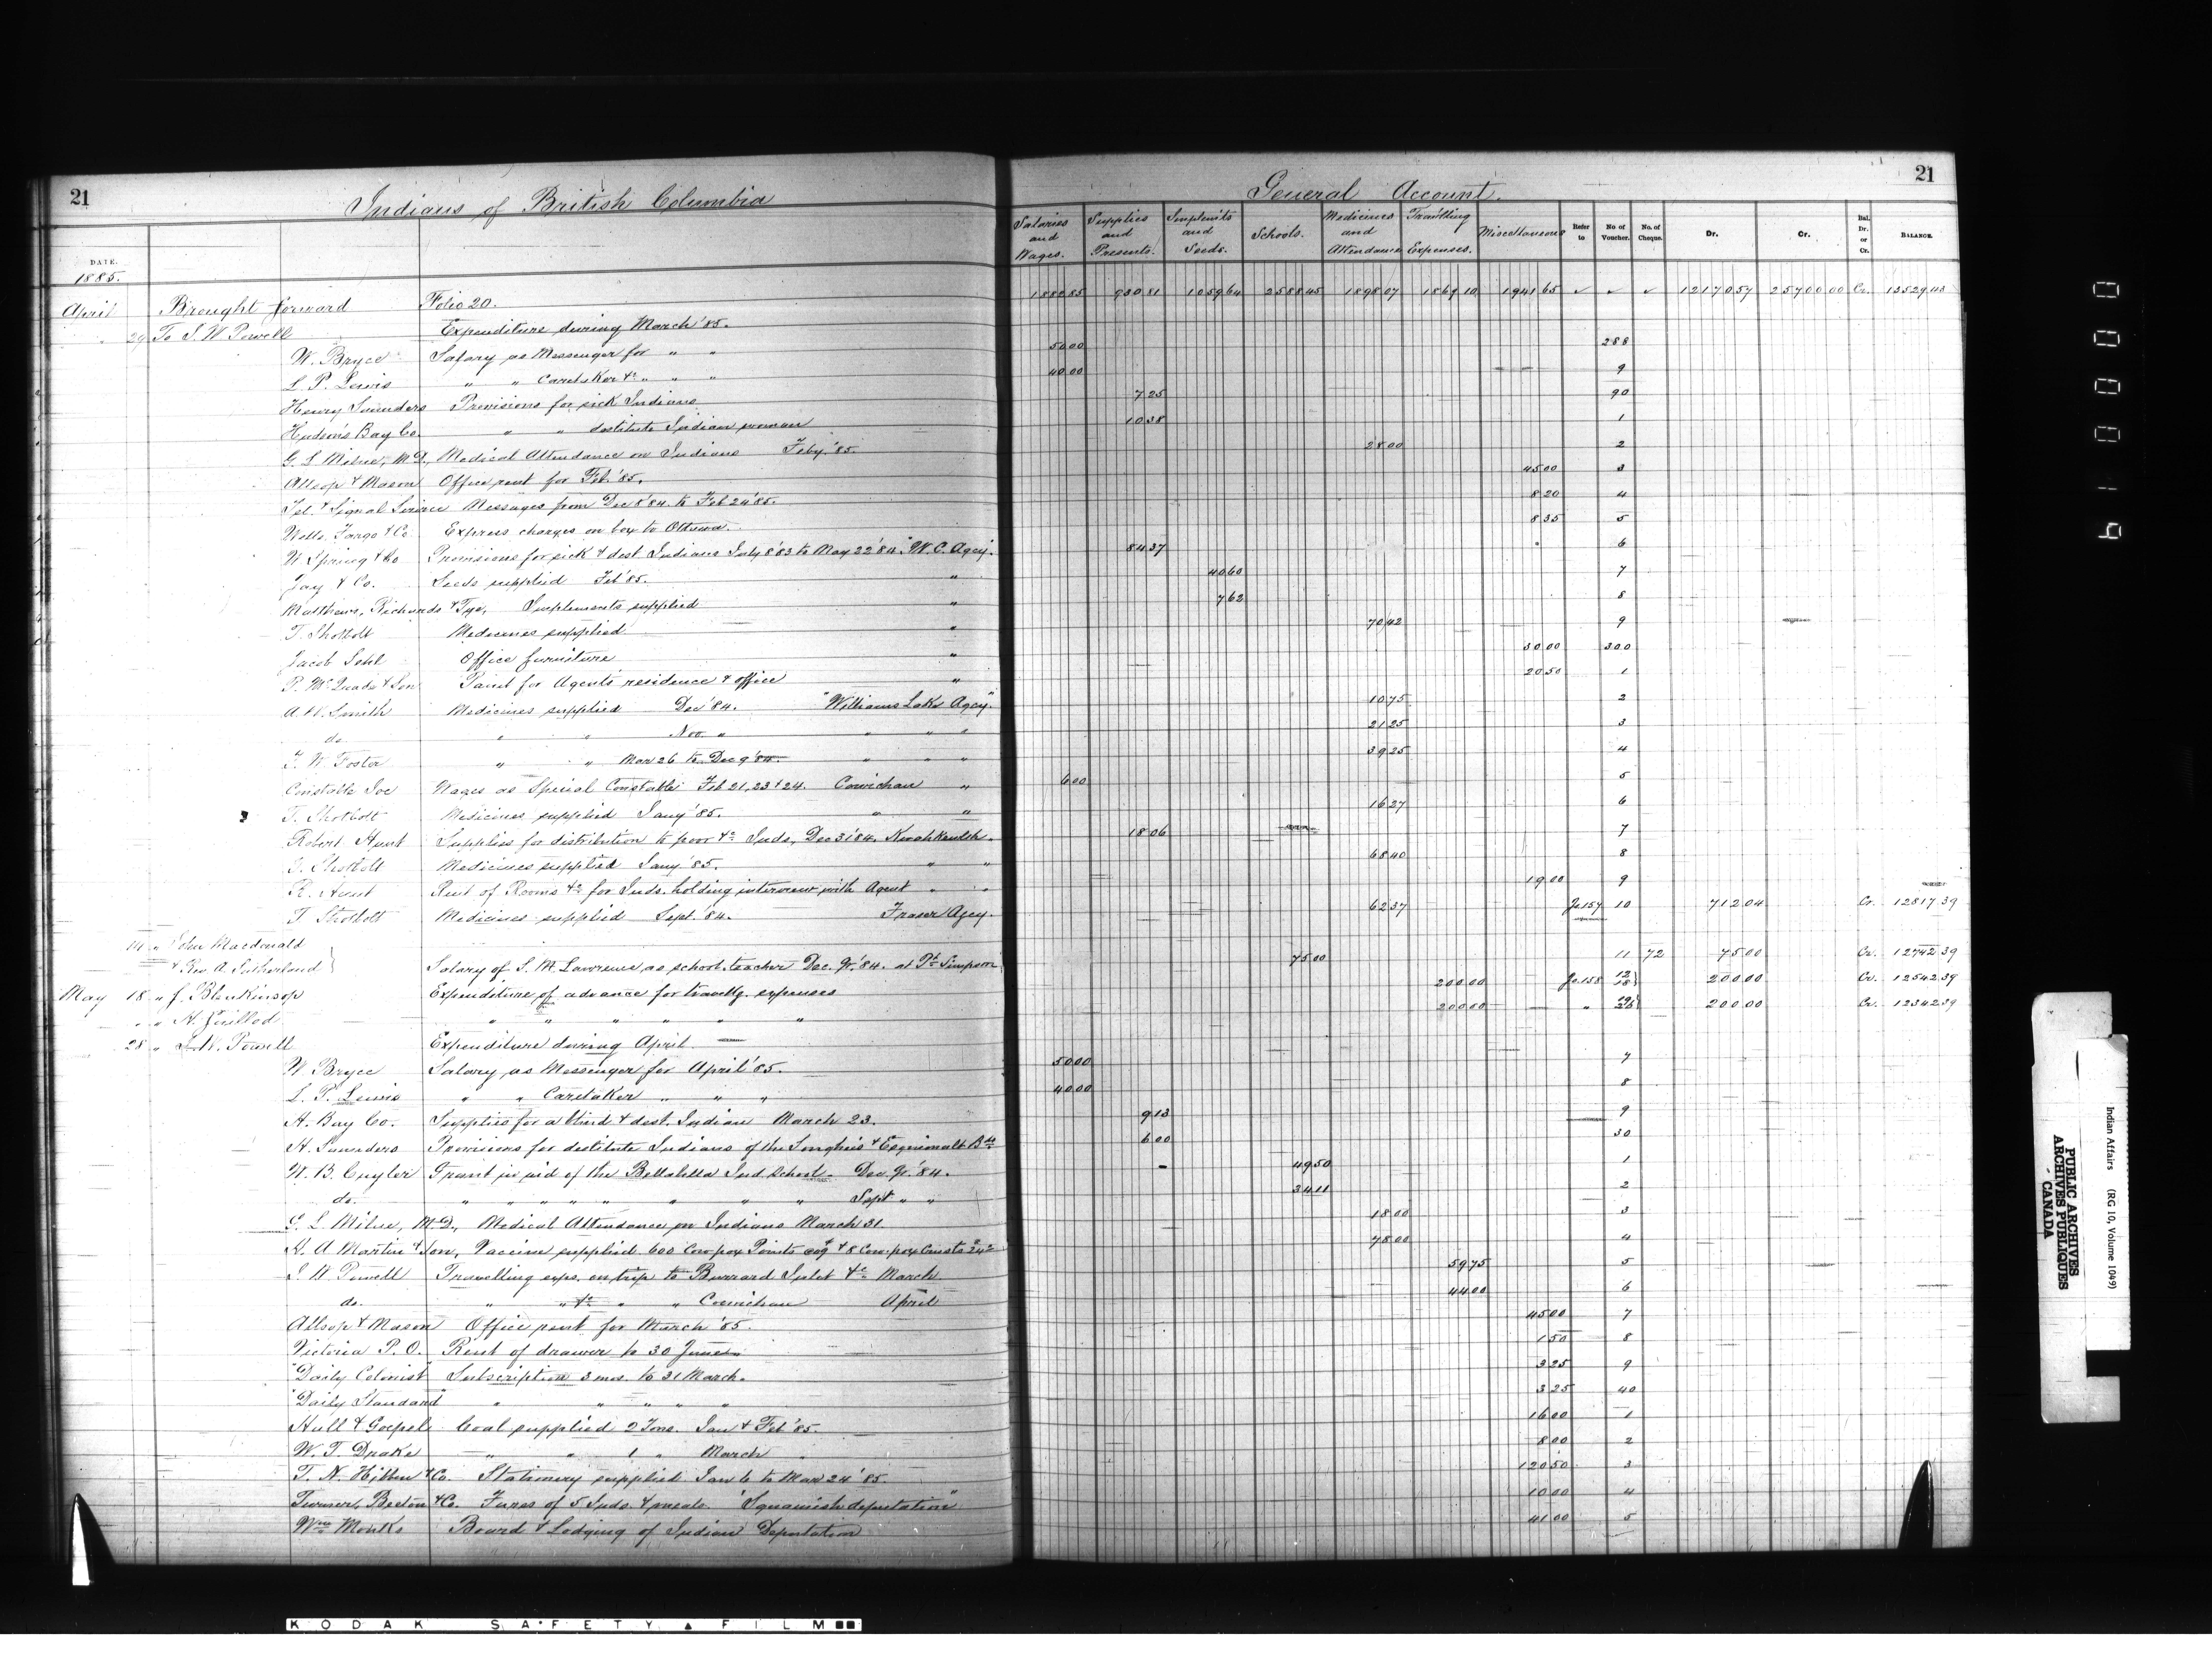 21
Indians of British Columbia
General Account.
21
DATE.
Salaries and Wages.
Supplies and Presents.
Implm'ts and Seeds.
Schools.
Medicines and Attendance
Trav'lling Expenses.
Miscellaneous
Refer to
No of Voucher.
No. of Cheque.
Dr.
Cr.
Bal. Dr. or Cr.
BALANCE.
1885.
April Brought forward Folio 20. 930 81 1059 64 2588 45 1898 07 1869 10 1941 65 ✓ ✓ ✓ 12170 57 25700 00 Cr. 13529 43
" 29 To I. W. Powell Expenditure during March '85.
W. Bryce Salary as Messenger for " " 50 00 288
L. P. Lewis " " Caretaker &c " " " 40 00 9
Henry Saunders Provisions for sick Indians 7 25 90
Hudson's Bay Co. " " destitute Indian woman 10 38 1
G. L. Milne, M.D., Medical Attendance on Indians Feby. '85. 28 00 2
Allsop & Mason Office rent for Feb. '85. 45 00 3
Tel. & Signal Service Messages from Dec 8 '84 to Feb 24 '85. 8 20 4
Wells, Fargo & Co. Express charges on box to Ottawa. 8 35 5
W. Spring & Co Provisions for sick & dest. Indians July 8 '83 to May 22 '84. "W. C. Agcy. 84 37 6
Jay & Co. Seeds supplied Feb '85. " 40 60 7
Matthews, Richards & Tye, Implements supplied " 7 62 8
T. Shotbolt Medicines supplied " 70 42 9
Jacob Sehl Office furniture " 30 00 300
P. McQuade & Son Paint for Agents residence & office " 20 50 1
A. W. Smith Medicines supplied Dec '84. "Williams Lake Agcy." 10 75 2
do. " " Nov. " " " " 21 25 3
F. W. Foster " " Mar 26 to Dec 9 '84. " " " 39 25 4
Constable Joe Wages as Special Constable Feb 21, 23 & 24. Cowichan " 6 00 5
T. Shotbolt Medicines supplied Jany '85. " " 16 27 6
Robert Hunt Supplies for distribution to poor &c Inds, Dec 31 '84. Kwahkewlth " 18 06 7
T. Shotbolt Medicines supplied Jany '85. " " 68 40 8
R. Hunt Rent of Rooms &c for Inds. holding interview with Agent " " 19 00 9
T. Shotbolt Medicines supplied Sept. '84. Fraser Agcy. 62 37 Jo 157 10 712 04 Cr. 12817 39
" John Macdonald
& Rev. A. Sutherland } Salary of S. M. Lawrence as school teacher Dec. Qr. '84. at Pt. Simpson 75 00 11 72 75 00 Cr. 12742 39
May 18 " J. Blenkinsop Expenditure of advance for travellg. expenses 200 00 Jo. 158 12 18 } 200 00 Cr. 12542 39
" " H. Guillod " " " " " " 200 00 " 19 26 } 200 00 Cr. 12342 39
28 " I. W. Powell Expenditure during April
W Bryce Salary as Messenger for April '85. 50 00 7
L. P. Lewis " " Caretaker " " " 40 00 8
H. Bay Co. Supplies for a blind & dest. Indian March 23. 9 13 9
H. Saunders Provisions for destitute Indians of the Songhies & Esquimalt Bds 6 00 30
W. B. Cuyler Grant in aid of the Bellabella Ind. School Dec. Qr. '84. 49 50 1
do. " " " " " " " " Sept " " 34 11 2
G. L. Milne, M.D., Medical Attendance on Indians March 31 18 00 3
H. A. Martin & Son, Vaccine supplied 600 Cow-pox Points & 8 Cow-pox Crusts 78 00 4
I. W. Powell Travelling exps. on trip to Burrard Inlet &c March 59 75 5
do. " " &c " " Cowichan April 44 00 6
Allsop & Mason Office rent for March '85. 45 00 7
Victoria P. O. Rent of drawer to 30 June 1 50 8
"Daily Colonist" Subscription 3 mos. to 31 March. 3 25 9
"Daily Standard" " " " " " 3 25 40
Hall & Goepel Coal supplied 2 Tons. Jan & Feb '85. 16 00 1
W. T. Drake " " 1 " March 8 00 2
T. N. Hibben & Co. Stationery supplied Jan 6 to Mar 24 '85. 120 50 3
Turner, Beeton & Co. Fares of 5 Inds. & meals. "Squamish deputation" 10 00 4
Wm Monks Board & Lodging of Indian Deputation 41 00 5
61000
PUBLIC ARCHIVES
ARCHIVES PUBLIQUES
CANADA
Indian Affairs (RG 10, Volume 1049)
KODAK SAFETY FILM